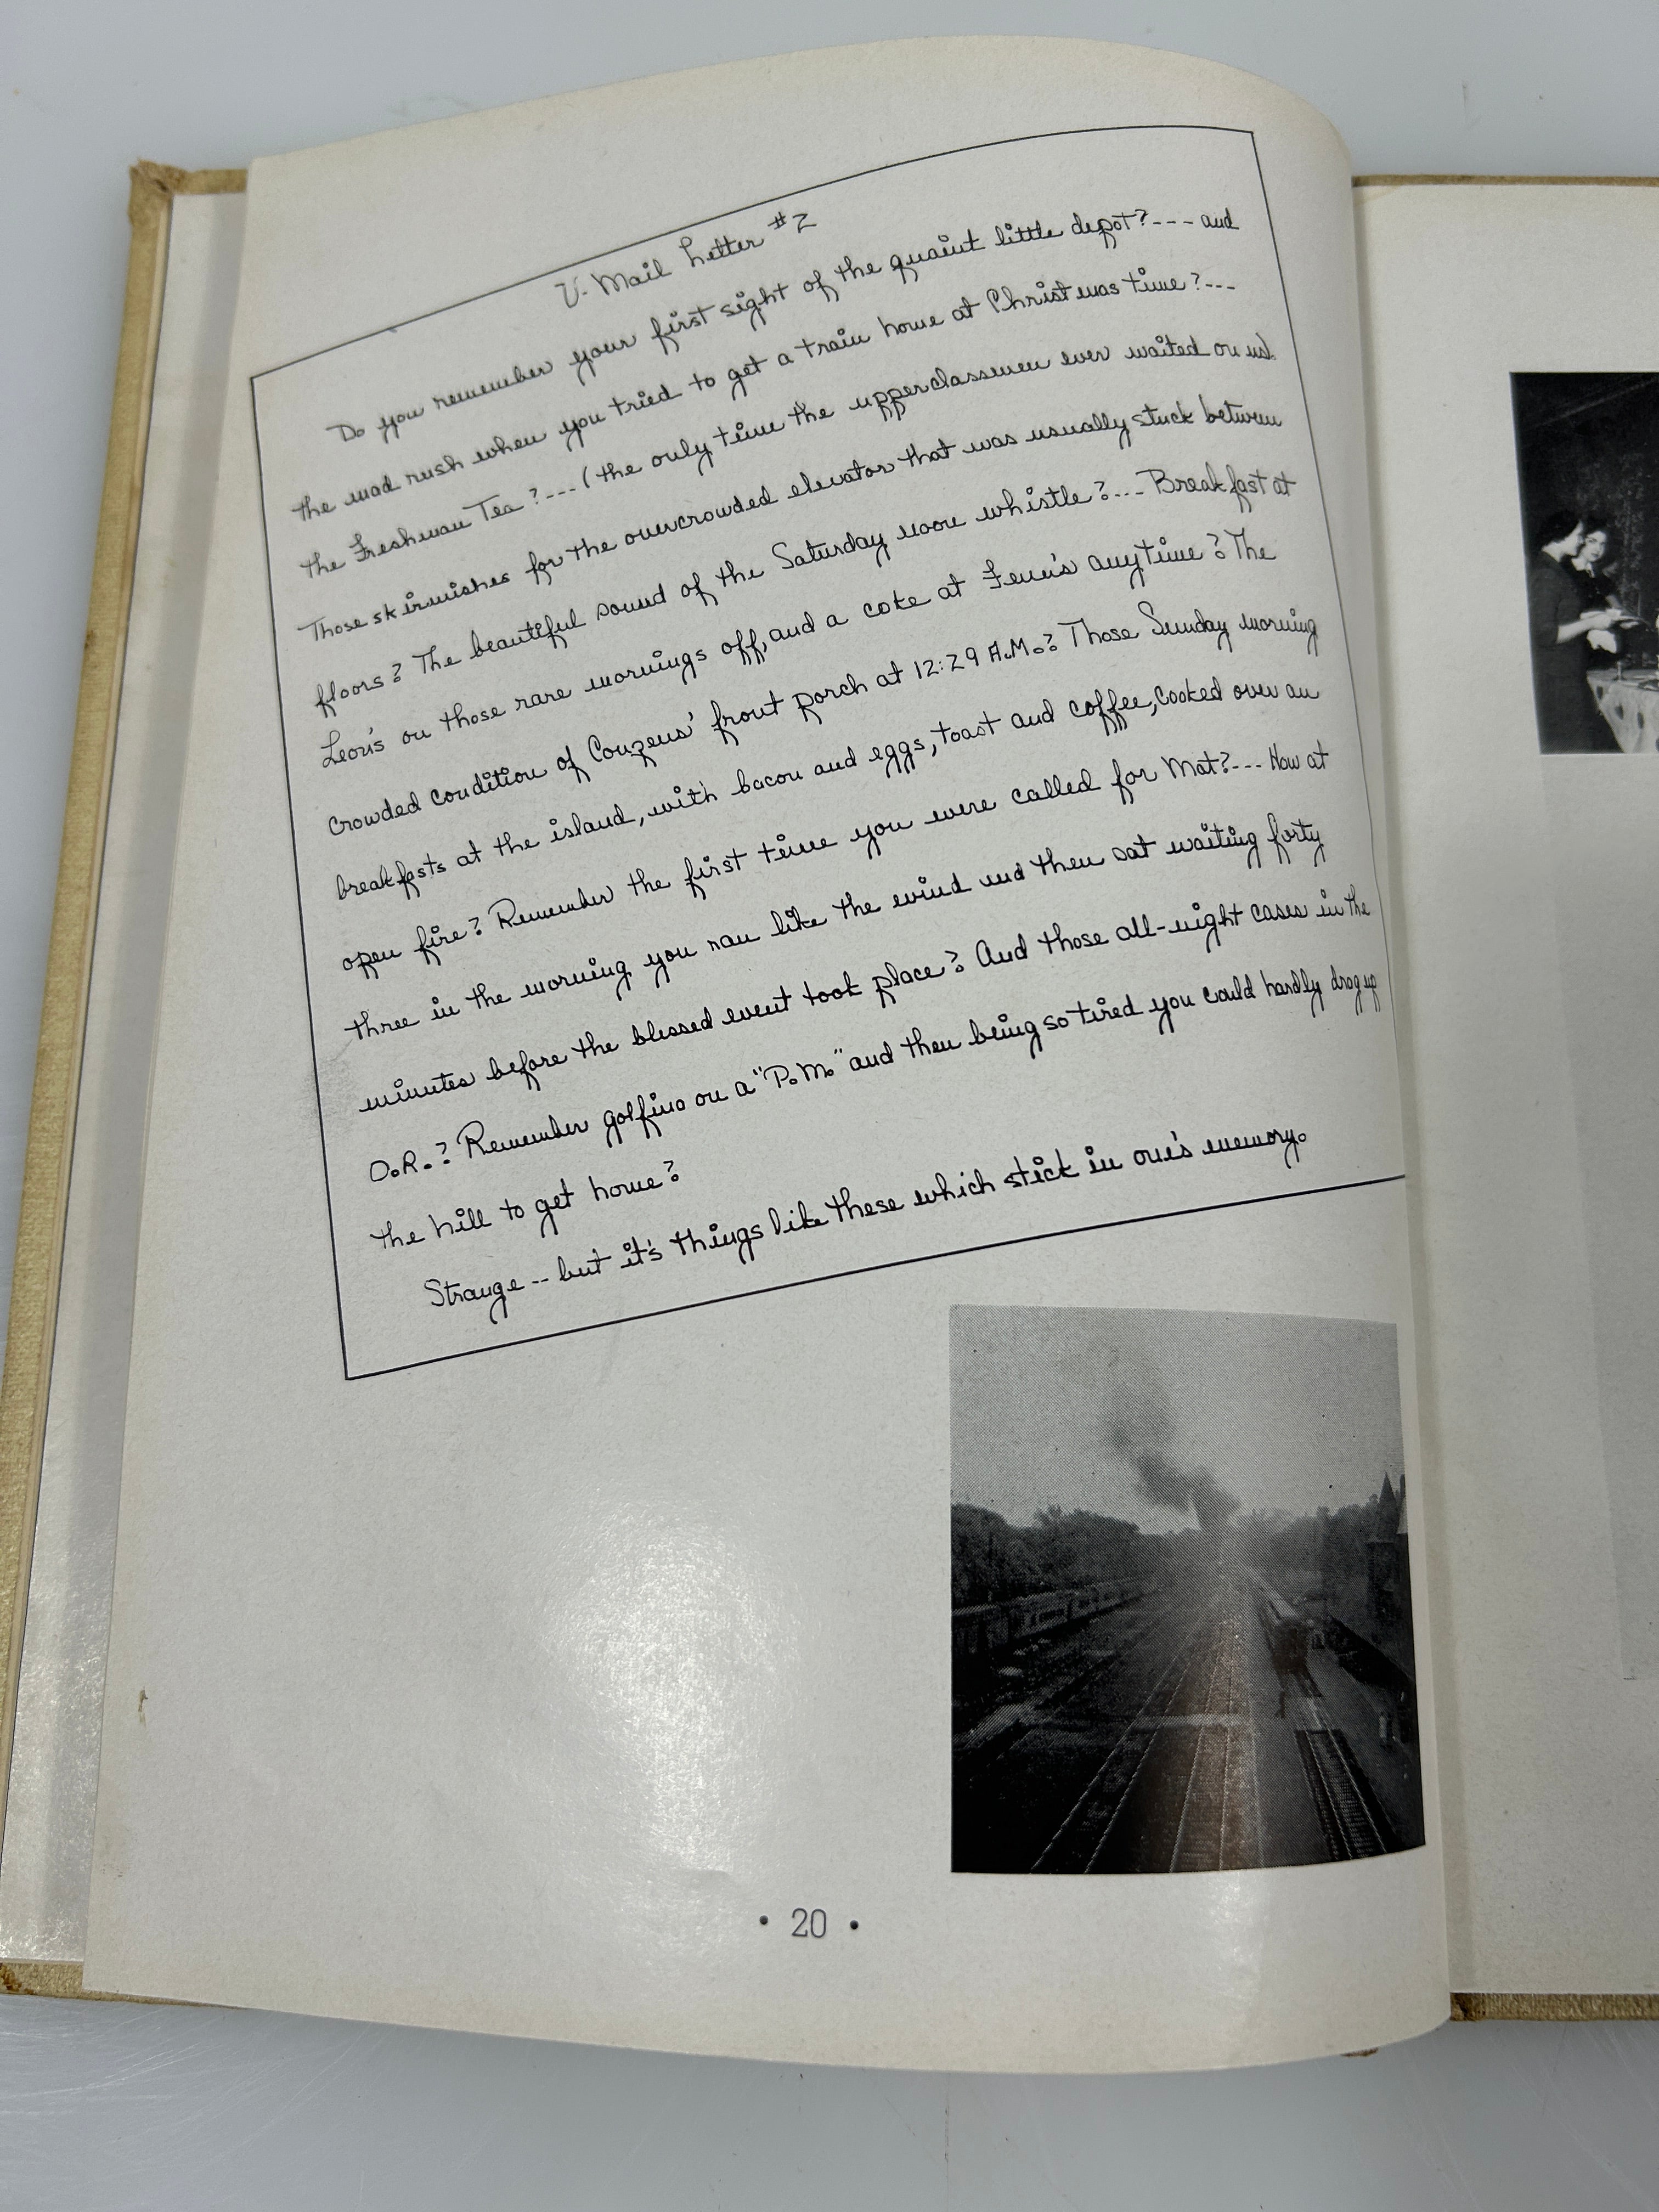 V-Mail Letter #2
Do you remember your first sight of the quaint little depot?--- and
the mad rush when you tried to get a train home at Christmas time?---
the Freshman Tea?---(the only time the upperclassmen ever waited on us).
Those skirmishes for the overcrowded elevator that was usually stuck between
floors? The beautiful sound of the Saturday noon whistle?--- Breakfast at
Leon's on those rare mornings off, and a coke at Fenn's anytime? The
crowded condition of Couzens' front porch at 12:29 A.M.? Those Sunday morning
breakfasts at the island, with bacon and eggs, toast and coffee, cooked over an
open fire? Remember the first time you were called for Mat?--- How at
three in the morning you ran like the wind and then sat waiting forty
minutes before the blessed event took place? And those all-night cases in the
O.R.? Remember golfing on a "P.M." and then being so tired you could hardly drag up
the hill to get home?
Strange -- but it's things like these which stick in one's memory.
• 20 •